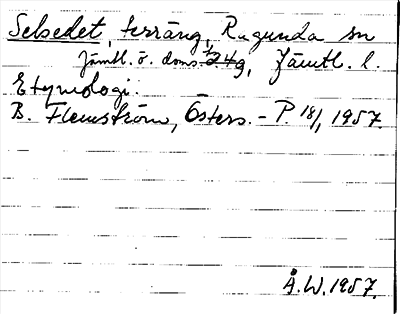 Selsedet, terräng, Ragunda sn
Jämtl. ö. doms. 249, Jämtl. l.
Etymologi.
B. Flemström, Östers. - P. 18/1, 1957.
Å.W. 1957.